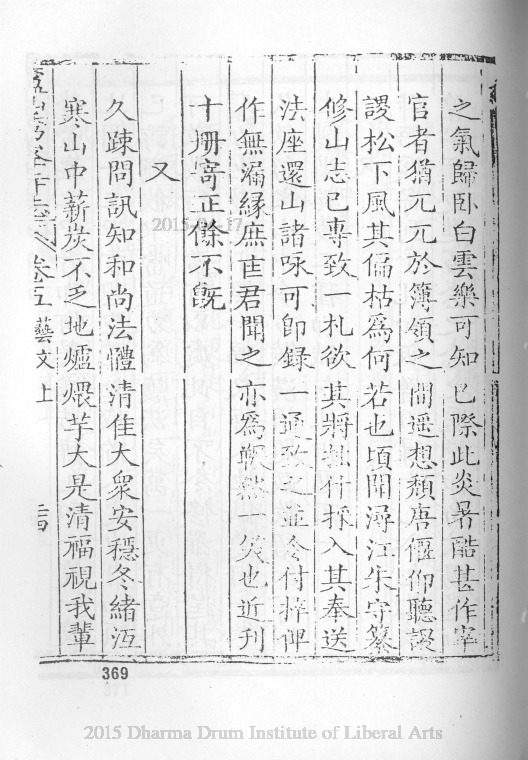 之氣歸卧白雲樂可知已際此炎暑酷甚作宰
官者猶兀兀於簿領之間遥想頽唐偃仰聽謖
謖松下風其偏枯爲何若也頃聞潯江朱守纂
修山志已專致一札欲其將拙什採入其奉送
法座還山諸咏可即録一通致之並令付梓俾
作無漏緣庶 君聞之亦爲囅然一笑也近刊
十册寄正餘不旣
又
久疎問訊知和尚法體清佳大衆安穩冬緒沍
寒山中薪炭不乏地爐煨芋大是清福視我輩
志 卷五 藝文上
369
2015 Dharma Drum Institute of Liberal Arts